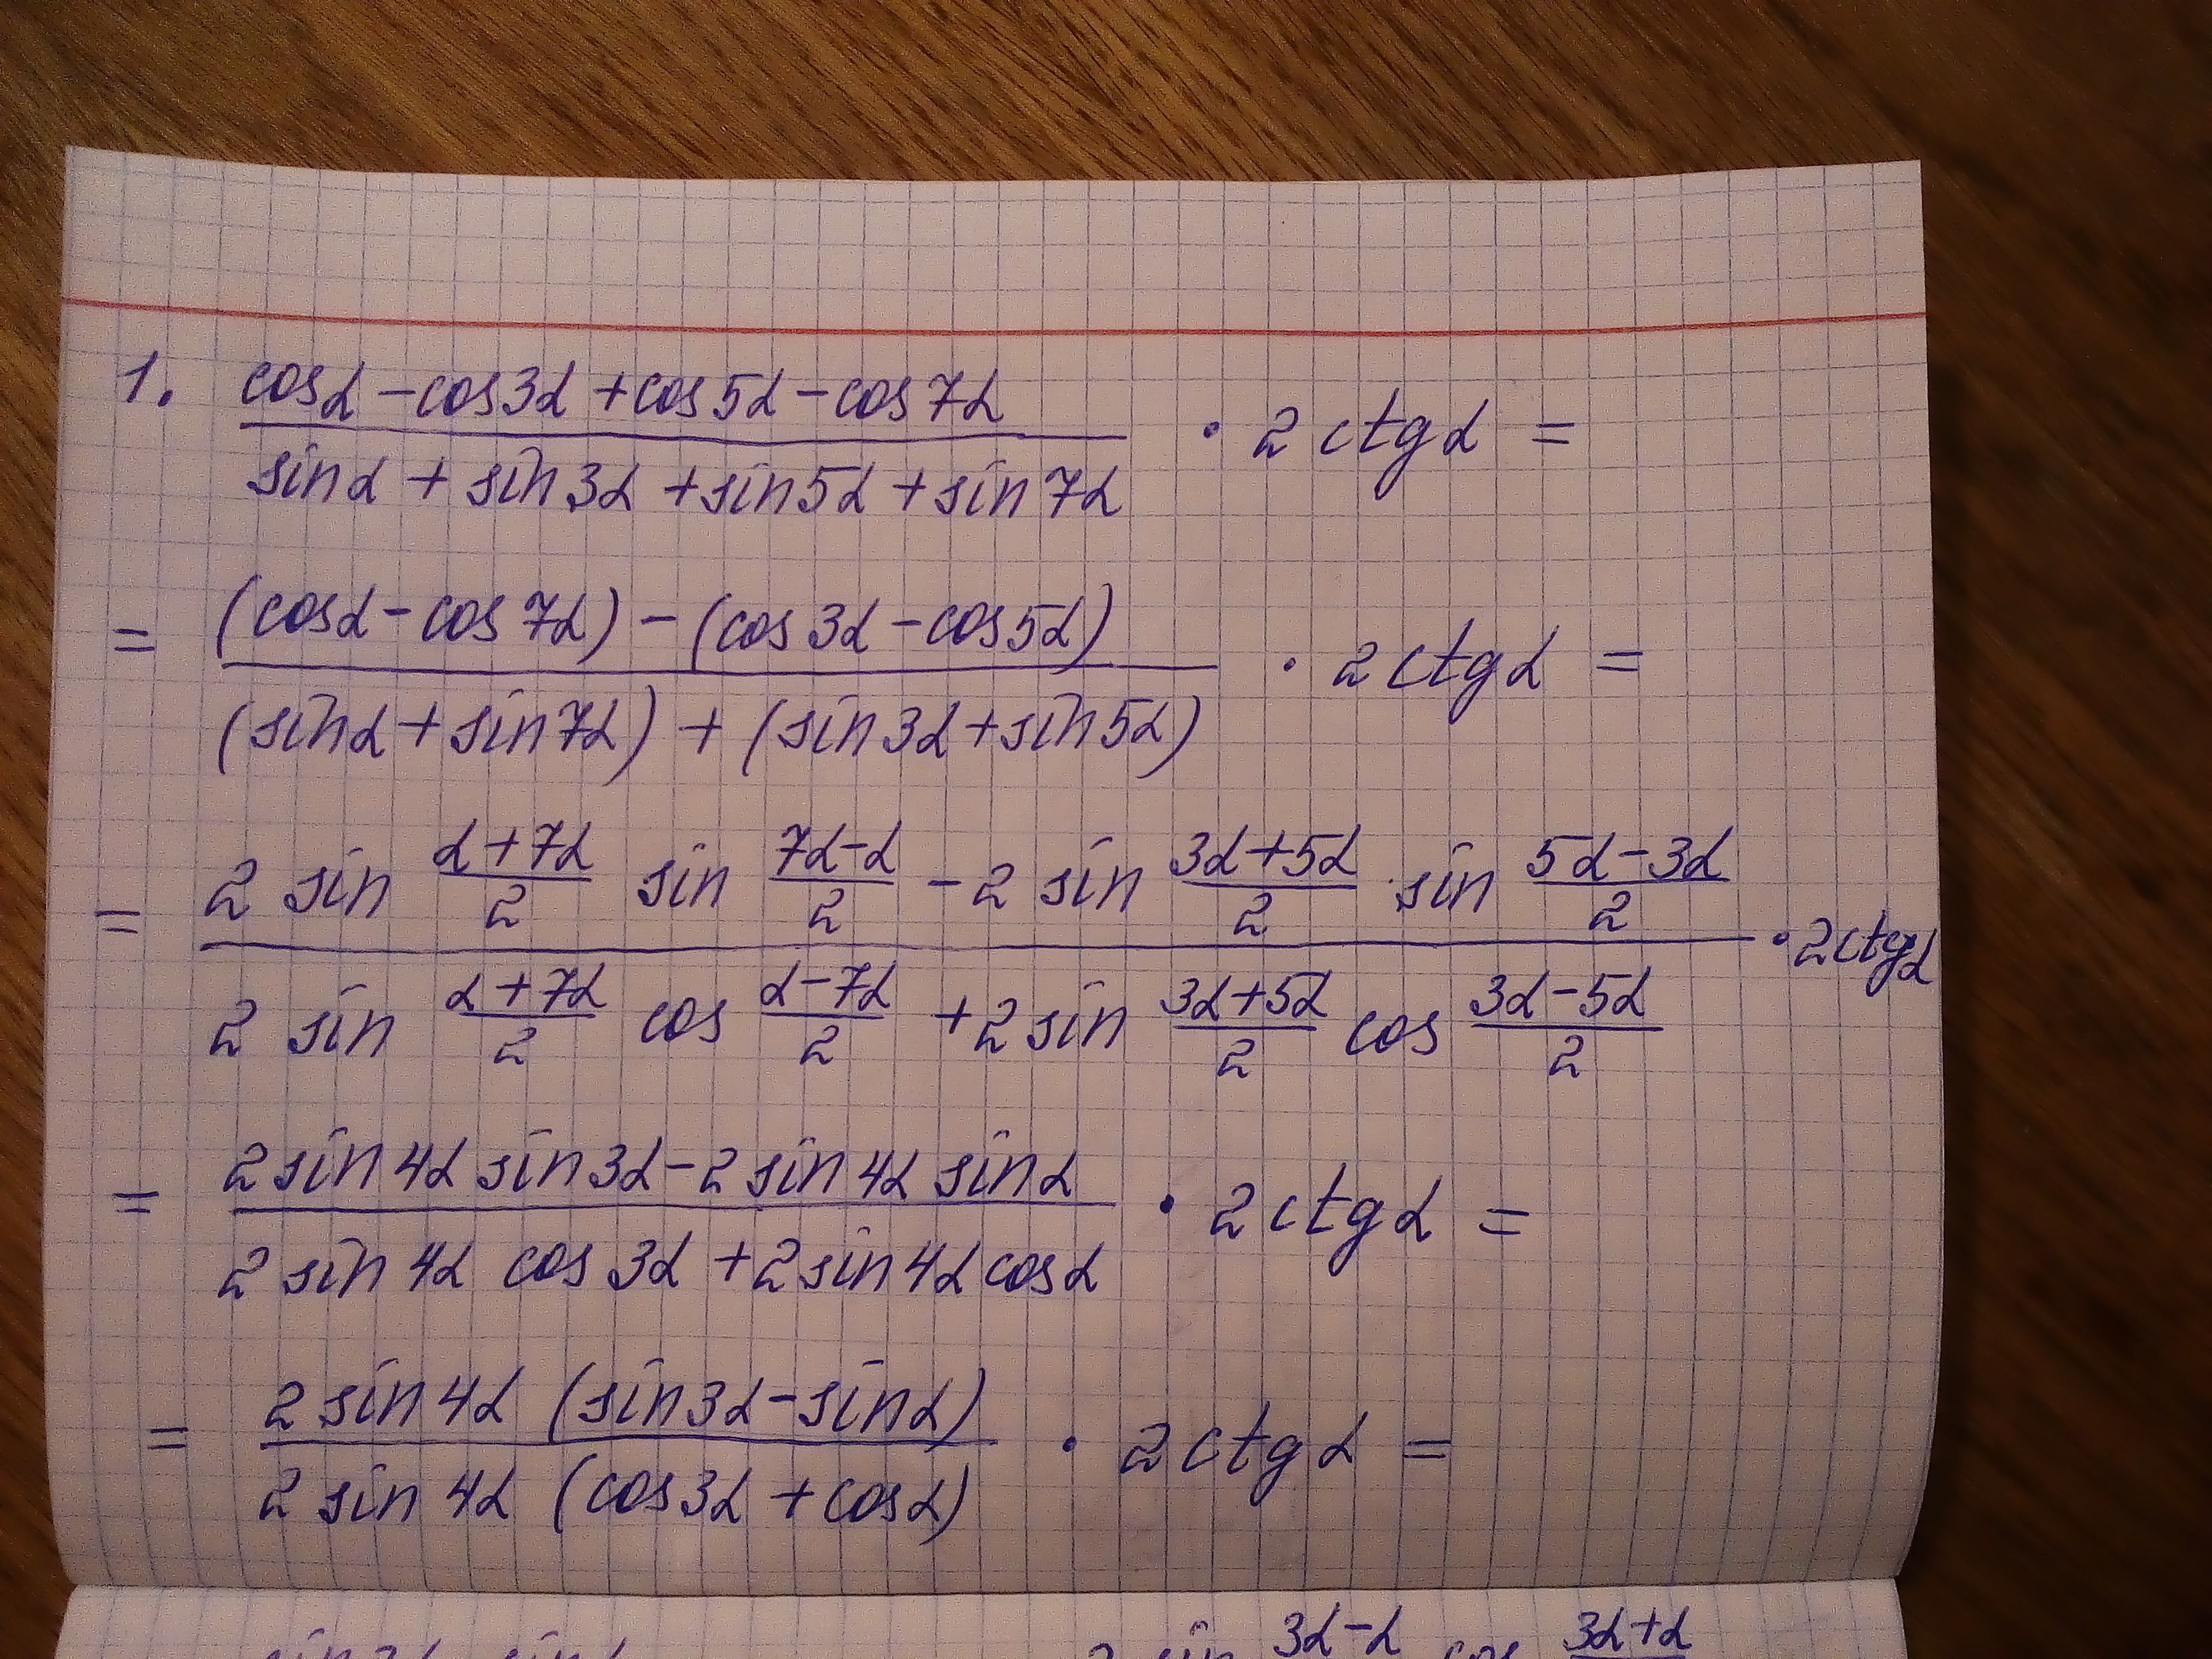 1. (cosα - cos3α + cos5α - cos7α)/(sinα + sin3α + sin5α + sin7α) · 2ctgα =
= ((cosα - cos7α) - (cos3α - cos5α))/((sinα + sin7α) + (sin3α + sin5α)) · 2ctgα =
= (2 sin (α+7α)/2 sin (7α-α)/2 - 2 sin (3α+5α)/2 · sin (5α-3α)/2)/(2 sin (α+7α)/2 cos (α-7α)/2 + 2 sin (3α+5α)/2 cos (3α-5α)/2) · 2ctgα
= (2 sin4α sin3α - 2 sin4α sinα)/(2 sin4α cos3α + 2 sin4α cosα) · 2ctgα =
= (2 sin4α (sin3α - sinα))/(2 sin4α (cos3α + cosα)) · 2ctgα =
sin (3α-α) cos (3α+α)